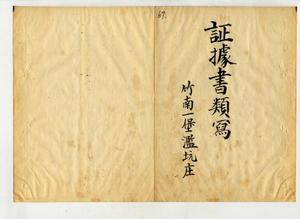 69.
証據書類寫
竹南一堡濫坑庄